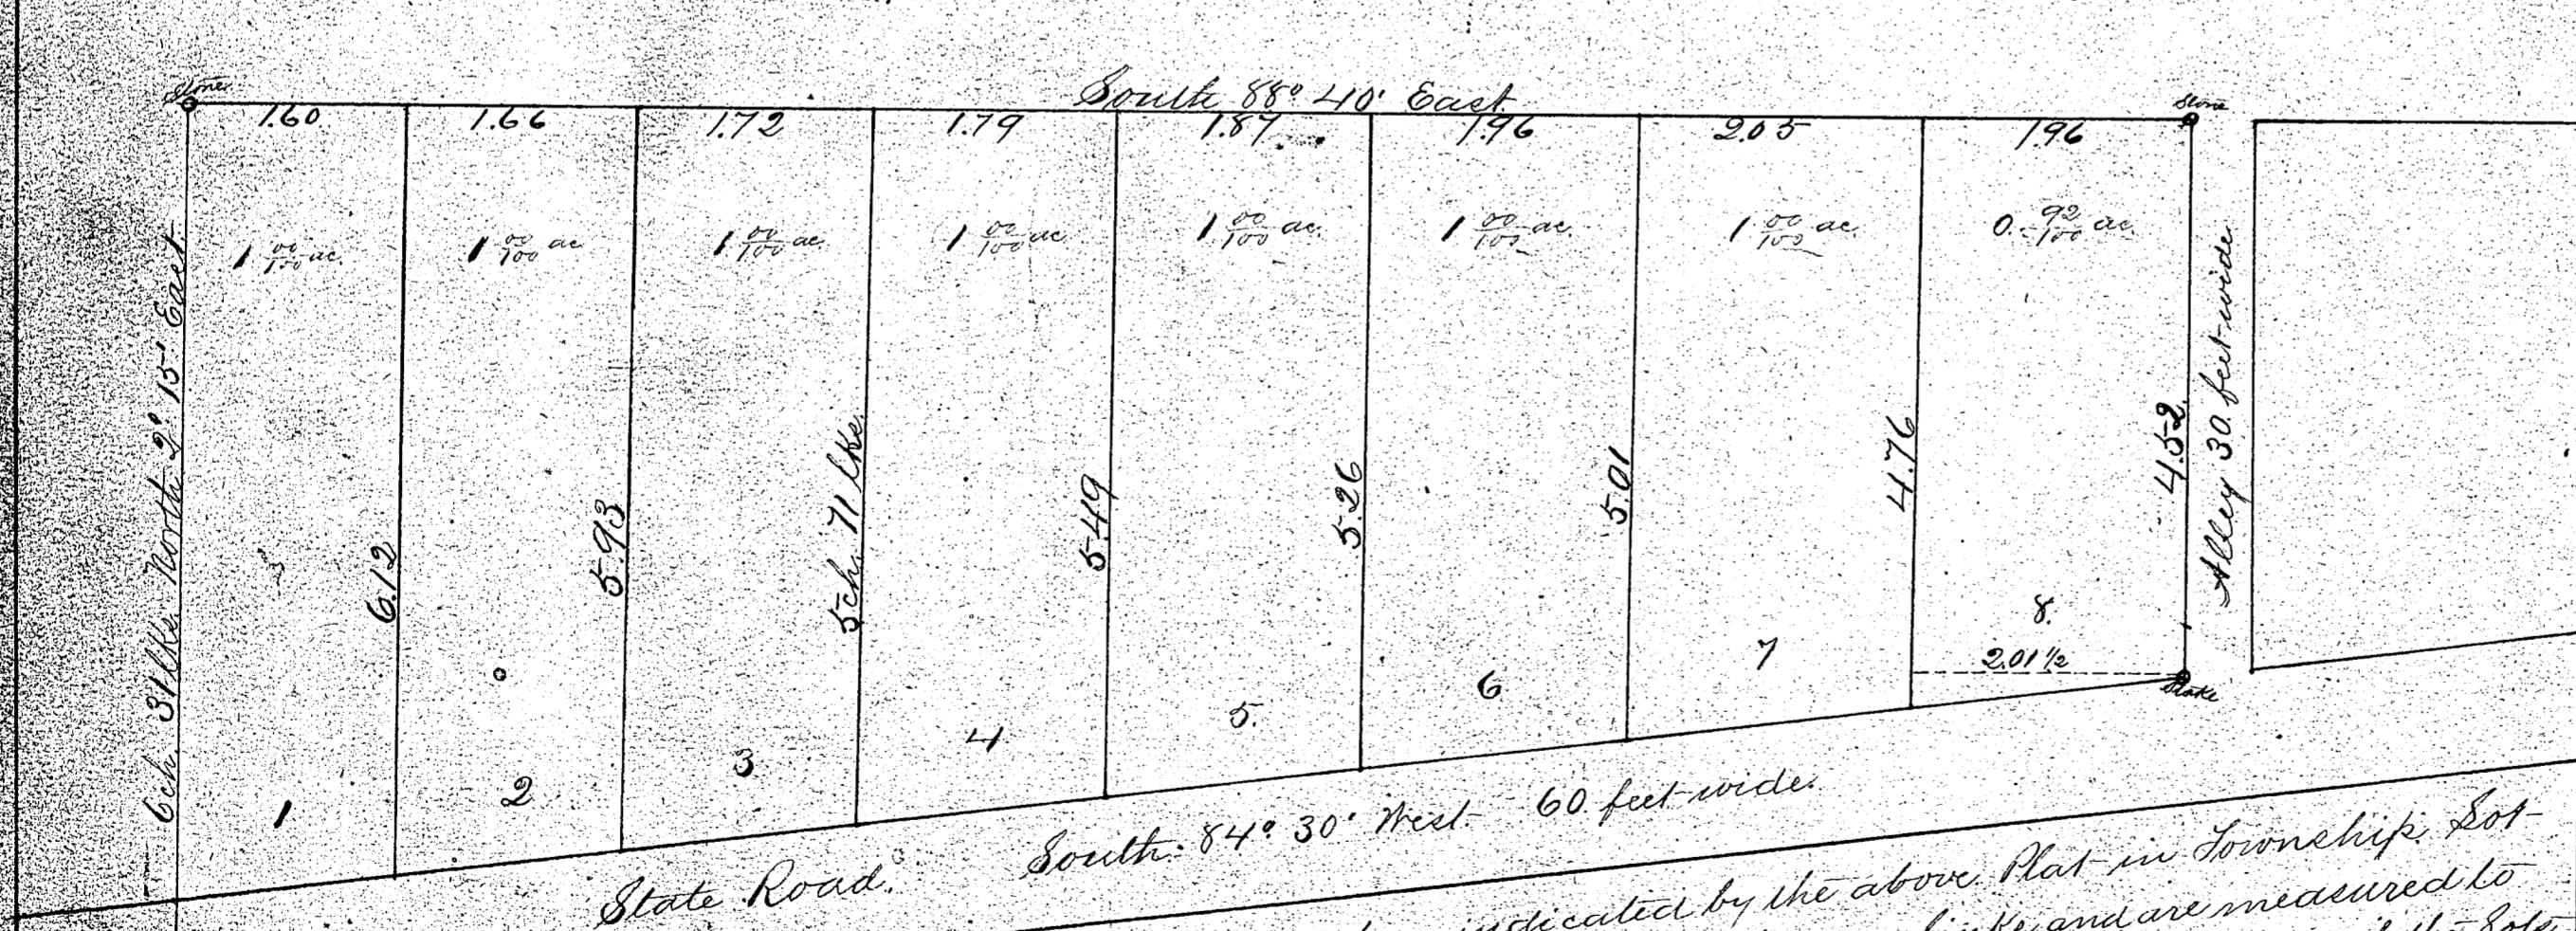 South 88° 40' East
Stone
Stone
1.60
1.66
1.72
1.79
1.87
1.96
2.05
1.96
1 00/100 ac.
1 00/100 ac
1 00/100 ac.
1 00/100 ac
1 00/100 ac.
1 00/100 ac.
1 00/100 ac.
0. 92/100 ac.
6 ch. 31 lks North 2° 15' East
6.12
5.93
5 ch. 71 lks.
5.49
5.26
5.01
4.76
4.52
Alley 30 feet wide
1
2
3
4
5.
6
7
8.
2.01 1/2
Stake
State Road. South 84° 30' West 60 feet wide.
indicated by the above Plat in Township. Lot
and are measured to
the Lots